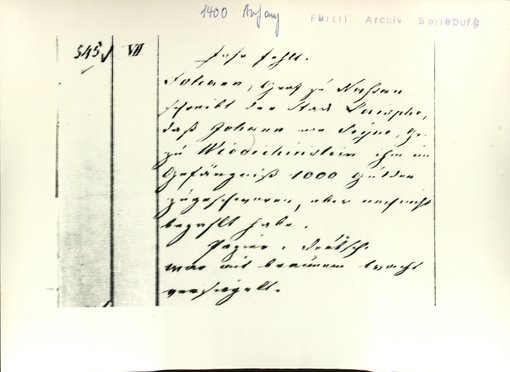 1400 Anfang
Fürstl. Archiv Berleburg
345 VII
Jahr fehlt.
Johann, Graf zu Naßau
schreibt der Stadt Laisphe,
daß Johann von Seyne, Gr.
zu Wiedichinstein ihm im
Gefängniß 1000 Gulden
zugeschworen, aber noch nicht
bezahlt habe.
Papier. deutsch.
war mit braunem Wachs
versiegelt.